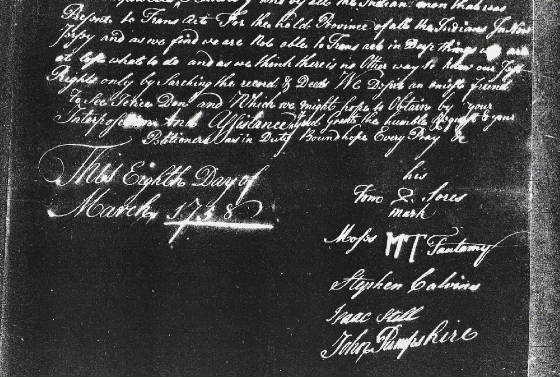 and by all the Indian men that was
Present to Trans Act For the hold Province of all the Indians In New
Jersy and as we find we are Not able to Trans act in Deep things we are
at loss what to do and as we think there is no Other way to know our Just
Rights only by Sarching the record & Deeds We Desire an
To See Done and Which we might hope to Obtain by your
Interposition And Assistance Grant the humble Request & your
Petitioners as in Duty Bound hope Every Pray &c
This Eighth Day of
March 1758
his
Tom Store
mark
Moses MT Tautamy
Stephen Calvins
Isaac Still
John Pumpshire